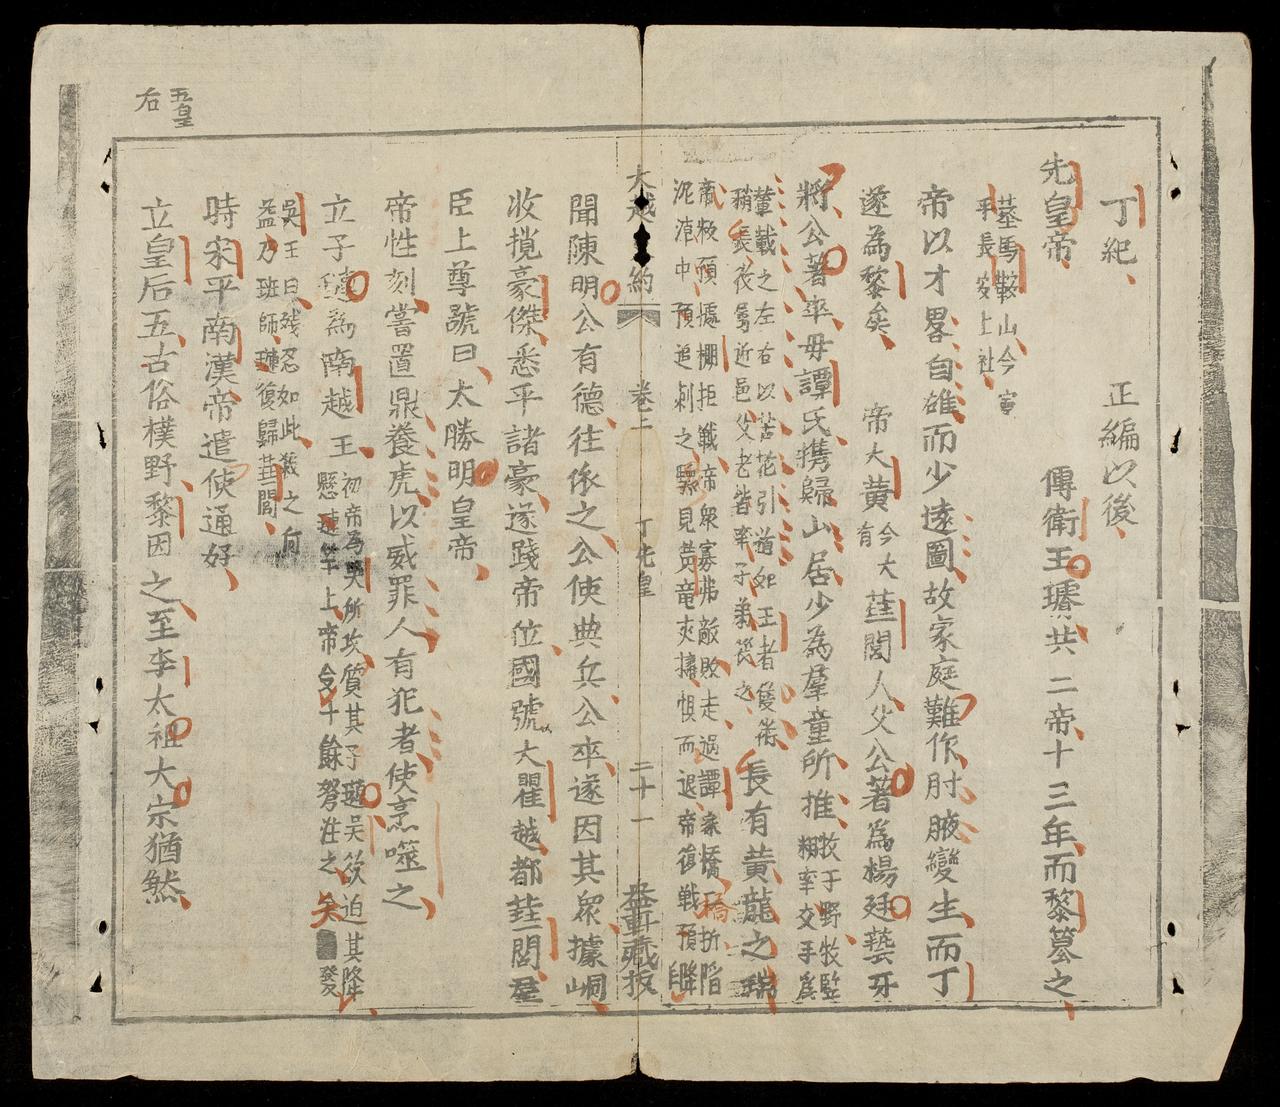 丁紀　正編以後
先皇帝　傳衛王璿共二帝十三年而黎篡之
墓馬鞍山今寧
平長安上社
帝以才畧自雄而少遠圖故家庭難作肘腋變生而丁
遂為黎矣　帝大黃
今大
有
蓶閭人父公著爲楊廷藝牙
將公著卒毋譚氏携歸山居少為羣童所推
牧于野牧監
相率交手爲
輦載之左右以苦花引道如王者隻衛
稍長夜多近邑父老皆率子弟從之
長有黃龍之瑞
帝叔預據棚拒戰帝衆寡弗敵敗走過譚家橋橋折陷
泥淖中預追刺之驟見黃竜夾擁惧而退帝復戰預降
大越　約　卷上　丁先皇　二十一　軒藏板
聞陳明公有德往依之公使典兵公卒遂因其衆據峒
收攬豪傑悉平諸豪遂踐帝位國號大瞿越都蓶閭羣
臣上尊號曰太勝明皇帝
帝性刻嘗置鼎養虎以威罪人有犯者使烹噬之
立子璉為南越王
初帝為吳所攻質其子璉吳欲迫其降
懸璉竿上帝令十餘弩注之矢發
吳王曰残忍如此殺之何
益乃班師璉復歸蓶閭
時宋平南漢帝遣使通好
立皇后五古俗樸野黎因之至李太祖大宗猶然
五皇
右